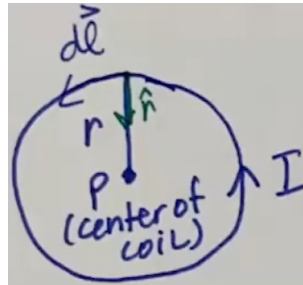 dl
r̂
r
P
I
(center of
coil)